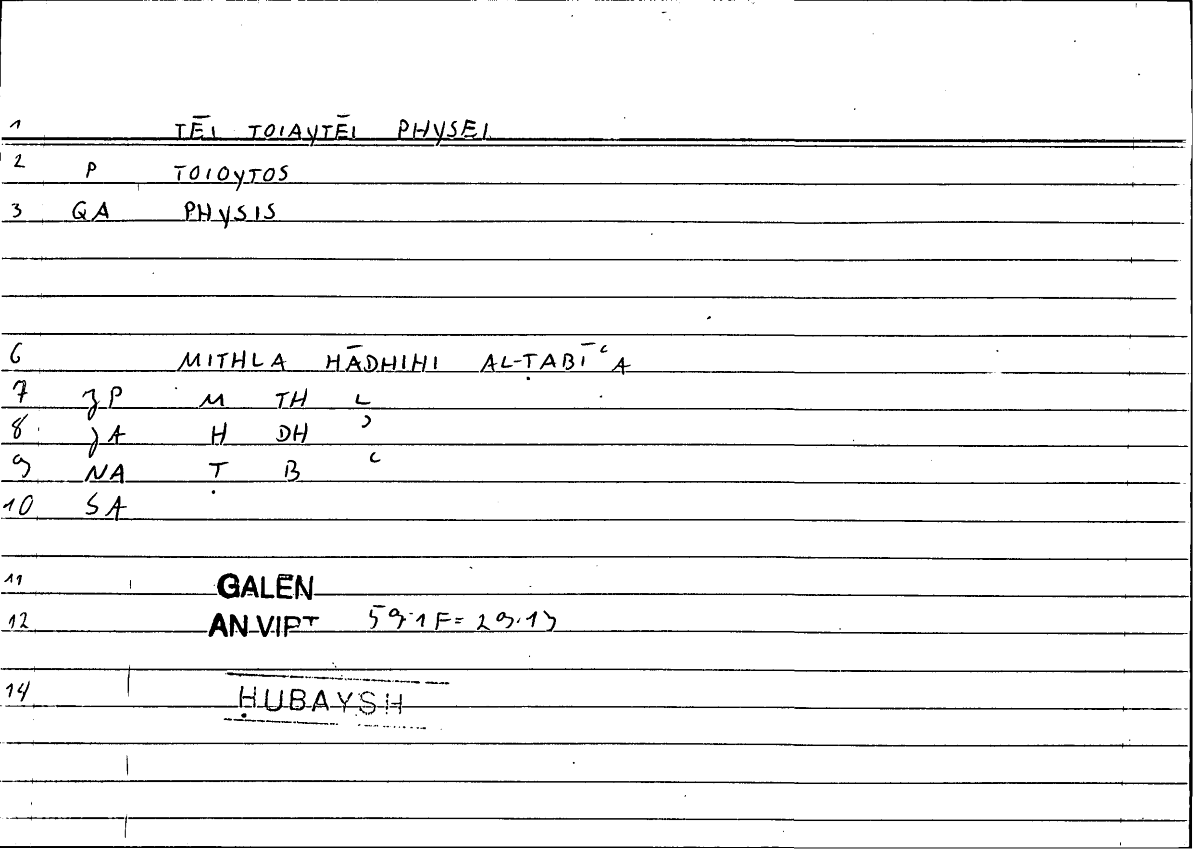 1 TĒI TOIAYTĒI PHYSEI
2 P TOIOYTOS
3 QA PHYSIS
6 MITHLA HĀDHIHI AL-ṬABĪʿA
7 P M TH L
8 A H DH ʾ
9 NA Ṭ B ʿ
10 SA
11 GALEN
12 AN VIRT 59.1F= 29.13
14 ḤUBAYSH